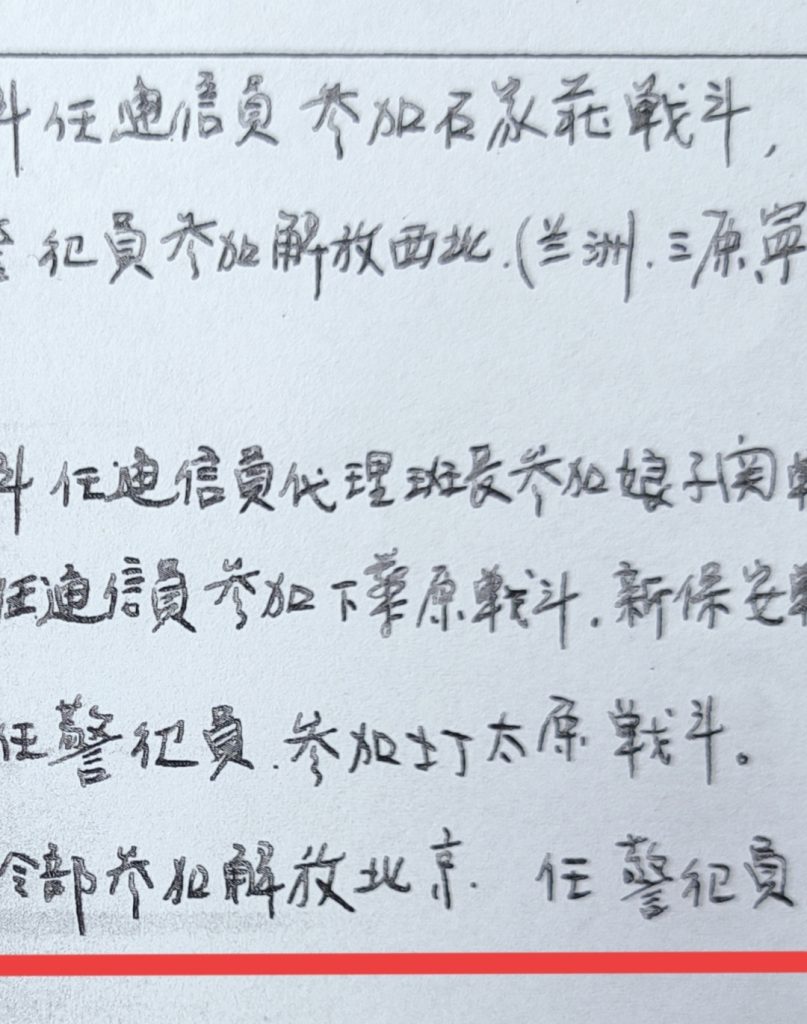 斗任通信員 参加石家莊戦斗，
警犯員参加解放西北.(兰洲.三原.寧
斗任通信員代理班長参加娘子関戦
任通信員参加下華原戦斗.新保安戦
任警犯員.参加打太原戦斗。
令部参加解放北京. 任警犯員